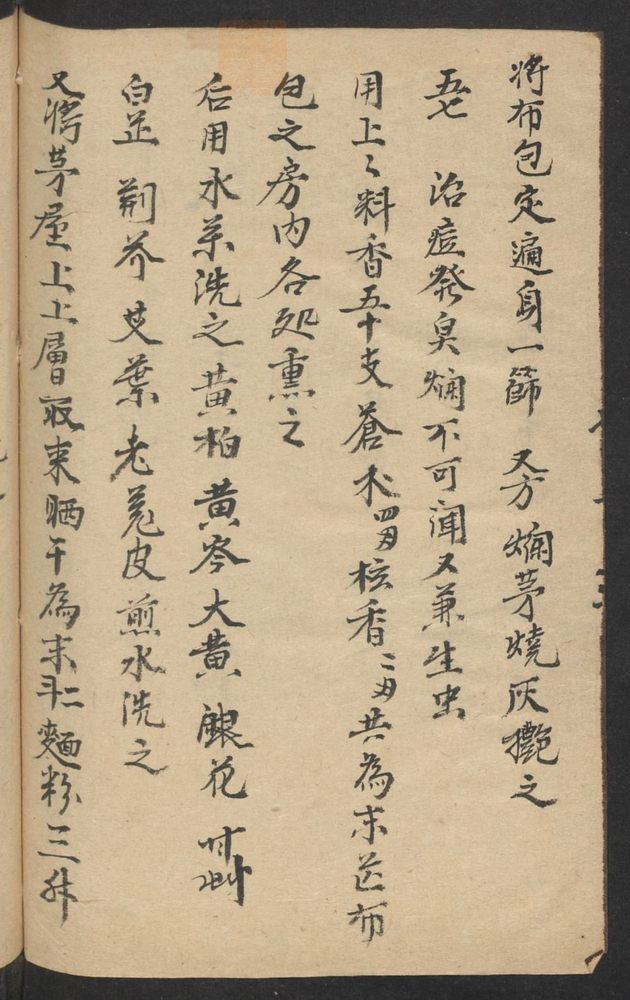 将布包定遍身一篩 又方爛茅燒灰𢷬之
五七 治痘発臭爛不可闻又兼生虫
用上々料香五十支蒼术四両桧香二両共為末芒布
包之房内各処熏之
后用水䒷洗之黄柏黄芩大黄銀花甘艸
白芷 荆芥艾葉老蒐皮煎水洗之
又将茅屋上上層取来晒干為末二斗麵粉三升